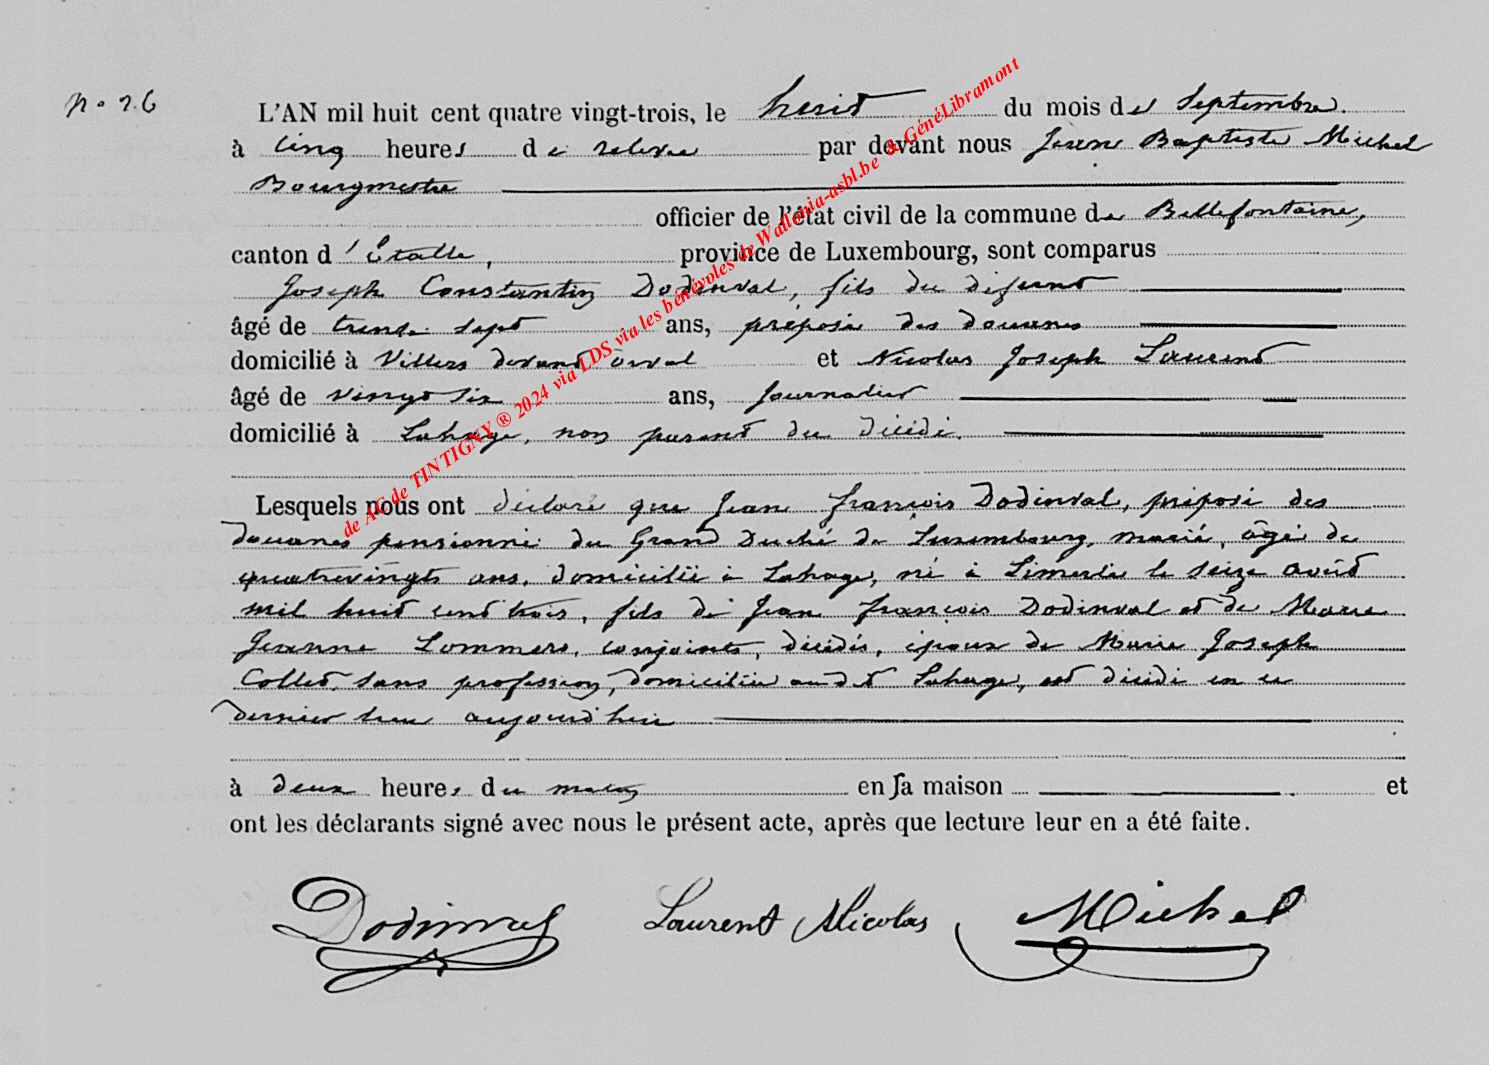 N° 26
L'AN mil huit cent quatre vingt-trois, le huit du mois de Septembre.
à cinq heures de relevée par devant nous Jean Baptiste Michel
Bourgmestre
officier de l'état civil de la commune de Bellefontaine,
canton d'Etalle, province de Luxembourg, sont comparus
Joseph Constantin Dodinval, fils du défunt
âgé de trente sept ans, préposé des douanes
domicilié à Villers devant Orval et Nicolas Joseph Laurent
âgé de vingt six ans, journalier
domicilié à Lahage, non parent du décédé.
Lesquels nous ont déclaré que Jean François Dodinval, préposé des
douanes pensionné du Grand Duché de Luxembourg, marié, âgé de
quatrevingts ans, domicilié à Lahage, né à Limerlé le seize août
mil huit cent trois, fils de Jean François Dodinval et de Marie
Jeanne Lommers, conjoints, décédés, époux de Marie Joseph
Collet, sans profession, domiciliée audit Lahage, est décédé en ce
dernier lieu aujourd'hui
à deux heures du matin en sa maison et
ont les déclarants signé avec nous le présent acte, après que lecture leur en a été faite.
Dodinval Laurent Nicolas Michel
de AC de TINTIGNY ® 2024 via LDS via les bénévoles de Wallonia-asbl.be & GénéLibramont